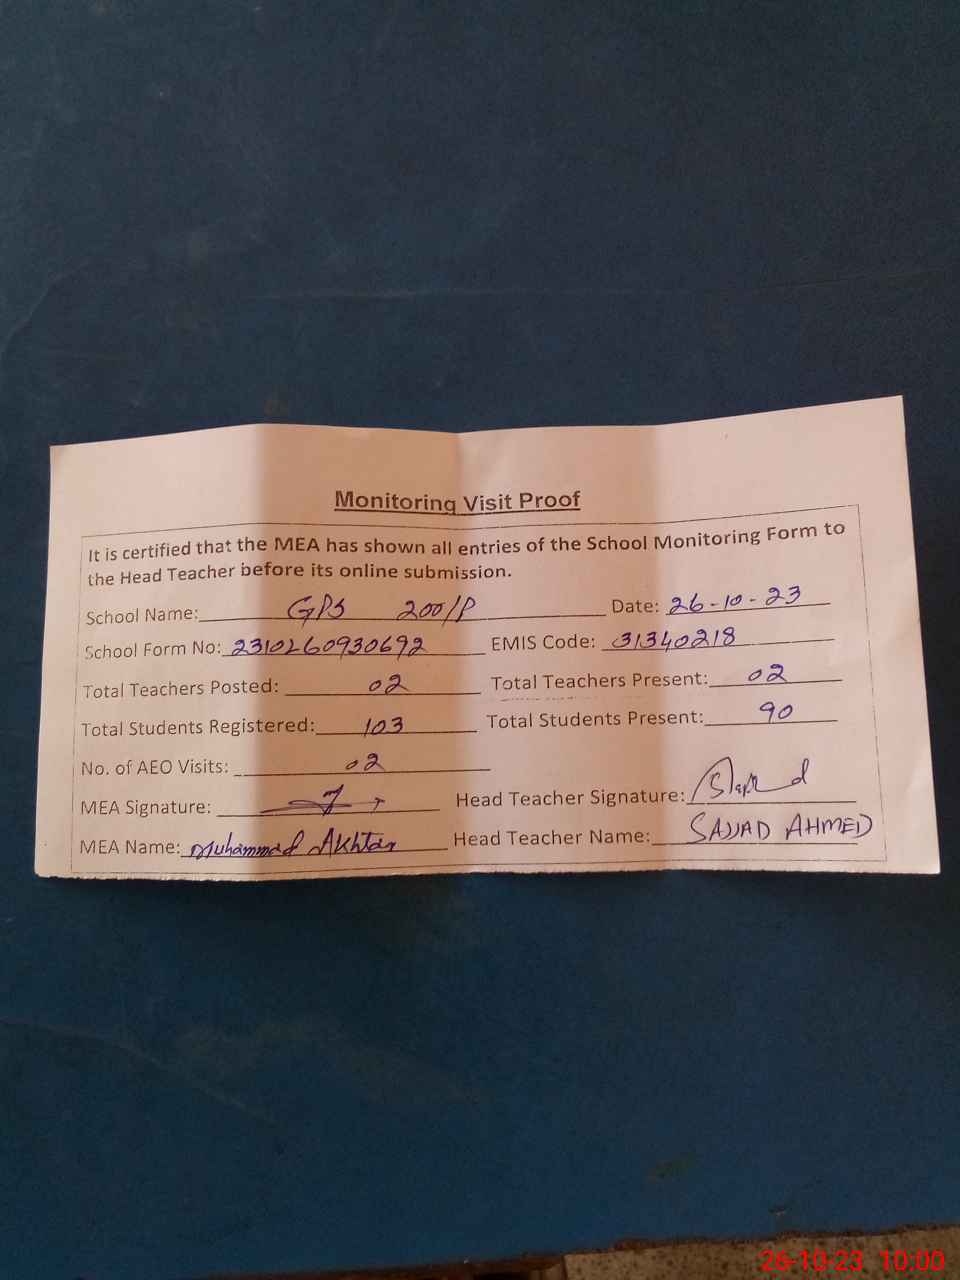 Monitoring Visit Proof
It is certified that the MEA has shown all entries of the School Monitoring Form to
the Head Teacher before its online submission.
School Name: GPS 200/P Date: 26-10-23
School Form No: 2310260930692 EMIS Code: 31340218
Total Teachers Posted: 02 Total Teachers Present: 02
Total Students Registered: 103 Total Students Present: 90
No. of AEO Visits: 02
MEA Signature: Head Teacher Signature:
MEA Name: Muhammad Akhtar Head Teacher Name: SAJJAD AHMED
26-10-23 10:00